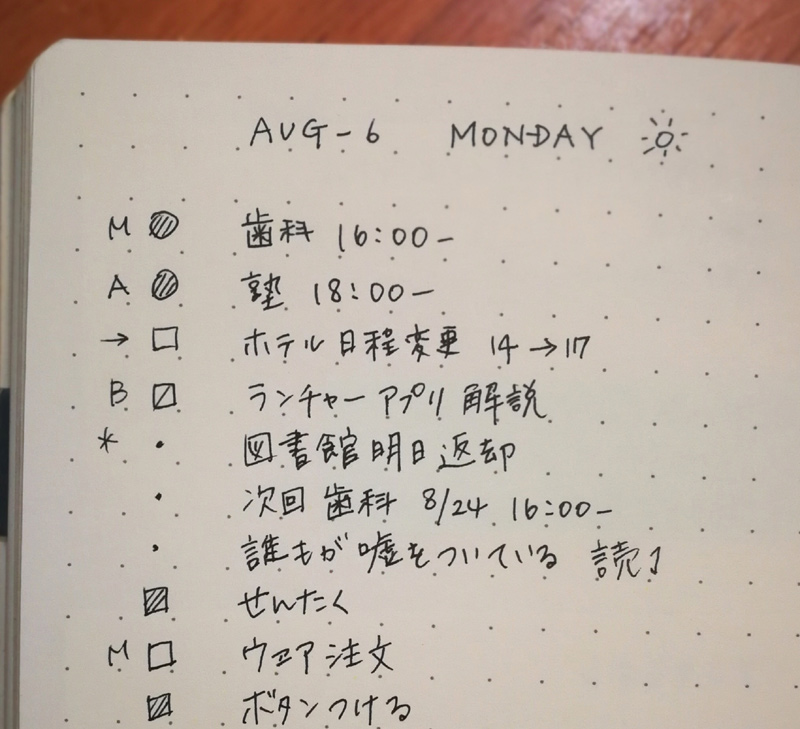 AUG-6 MONDAY
M 歯科 16:00-
A 塾 18:00-
→ ホテル日程変更 14→17
B ランチャーアプリ解説
* ・ 図書館明日返却
・ 次回歯科 8/24 16:00-
・ 誰もが嘘をついている 読了
せんたく
M ウェア注文
ボタンつける